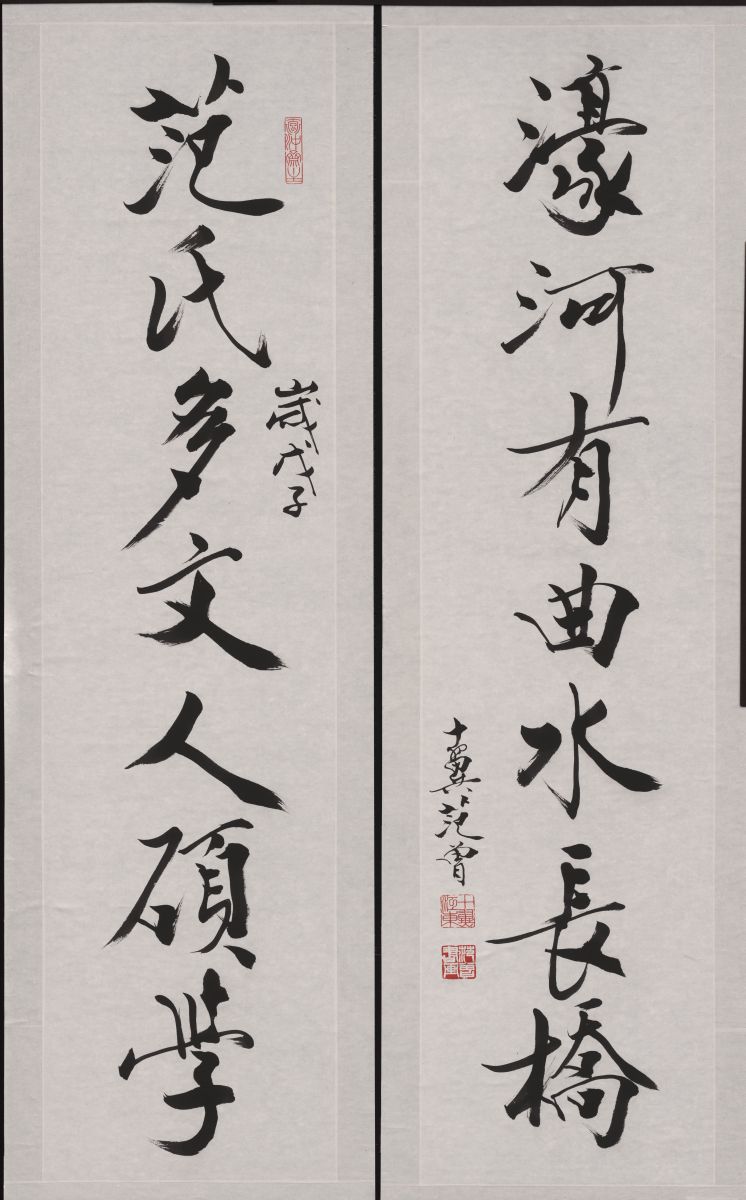 范氏多文人碩学
歲戊子
濠河有曲水長橋
十翼范曾